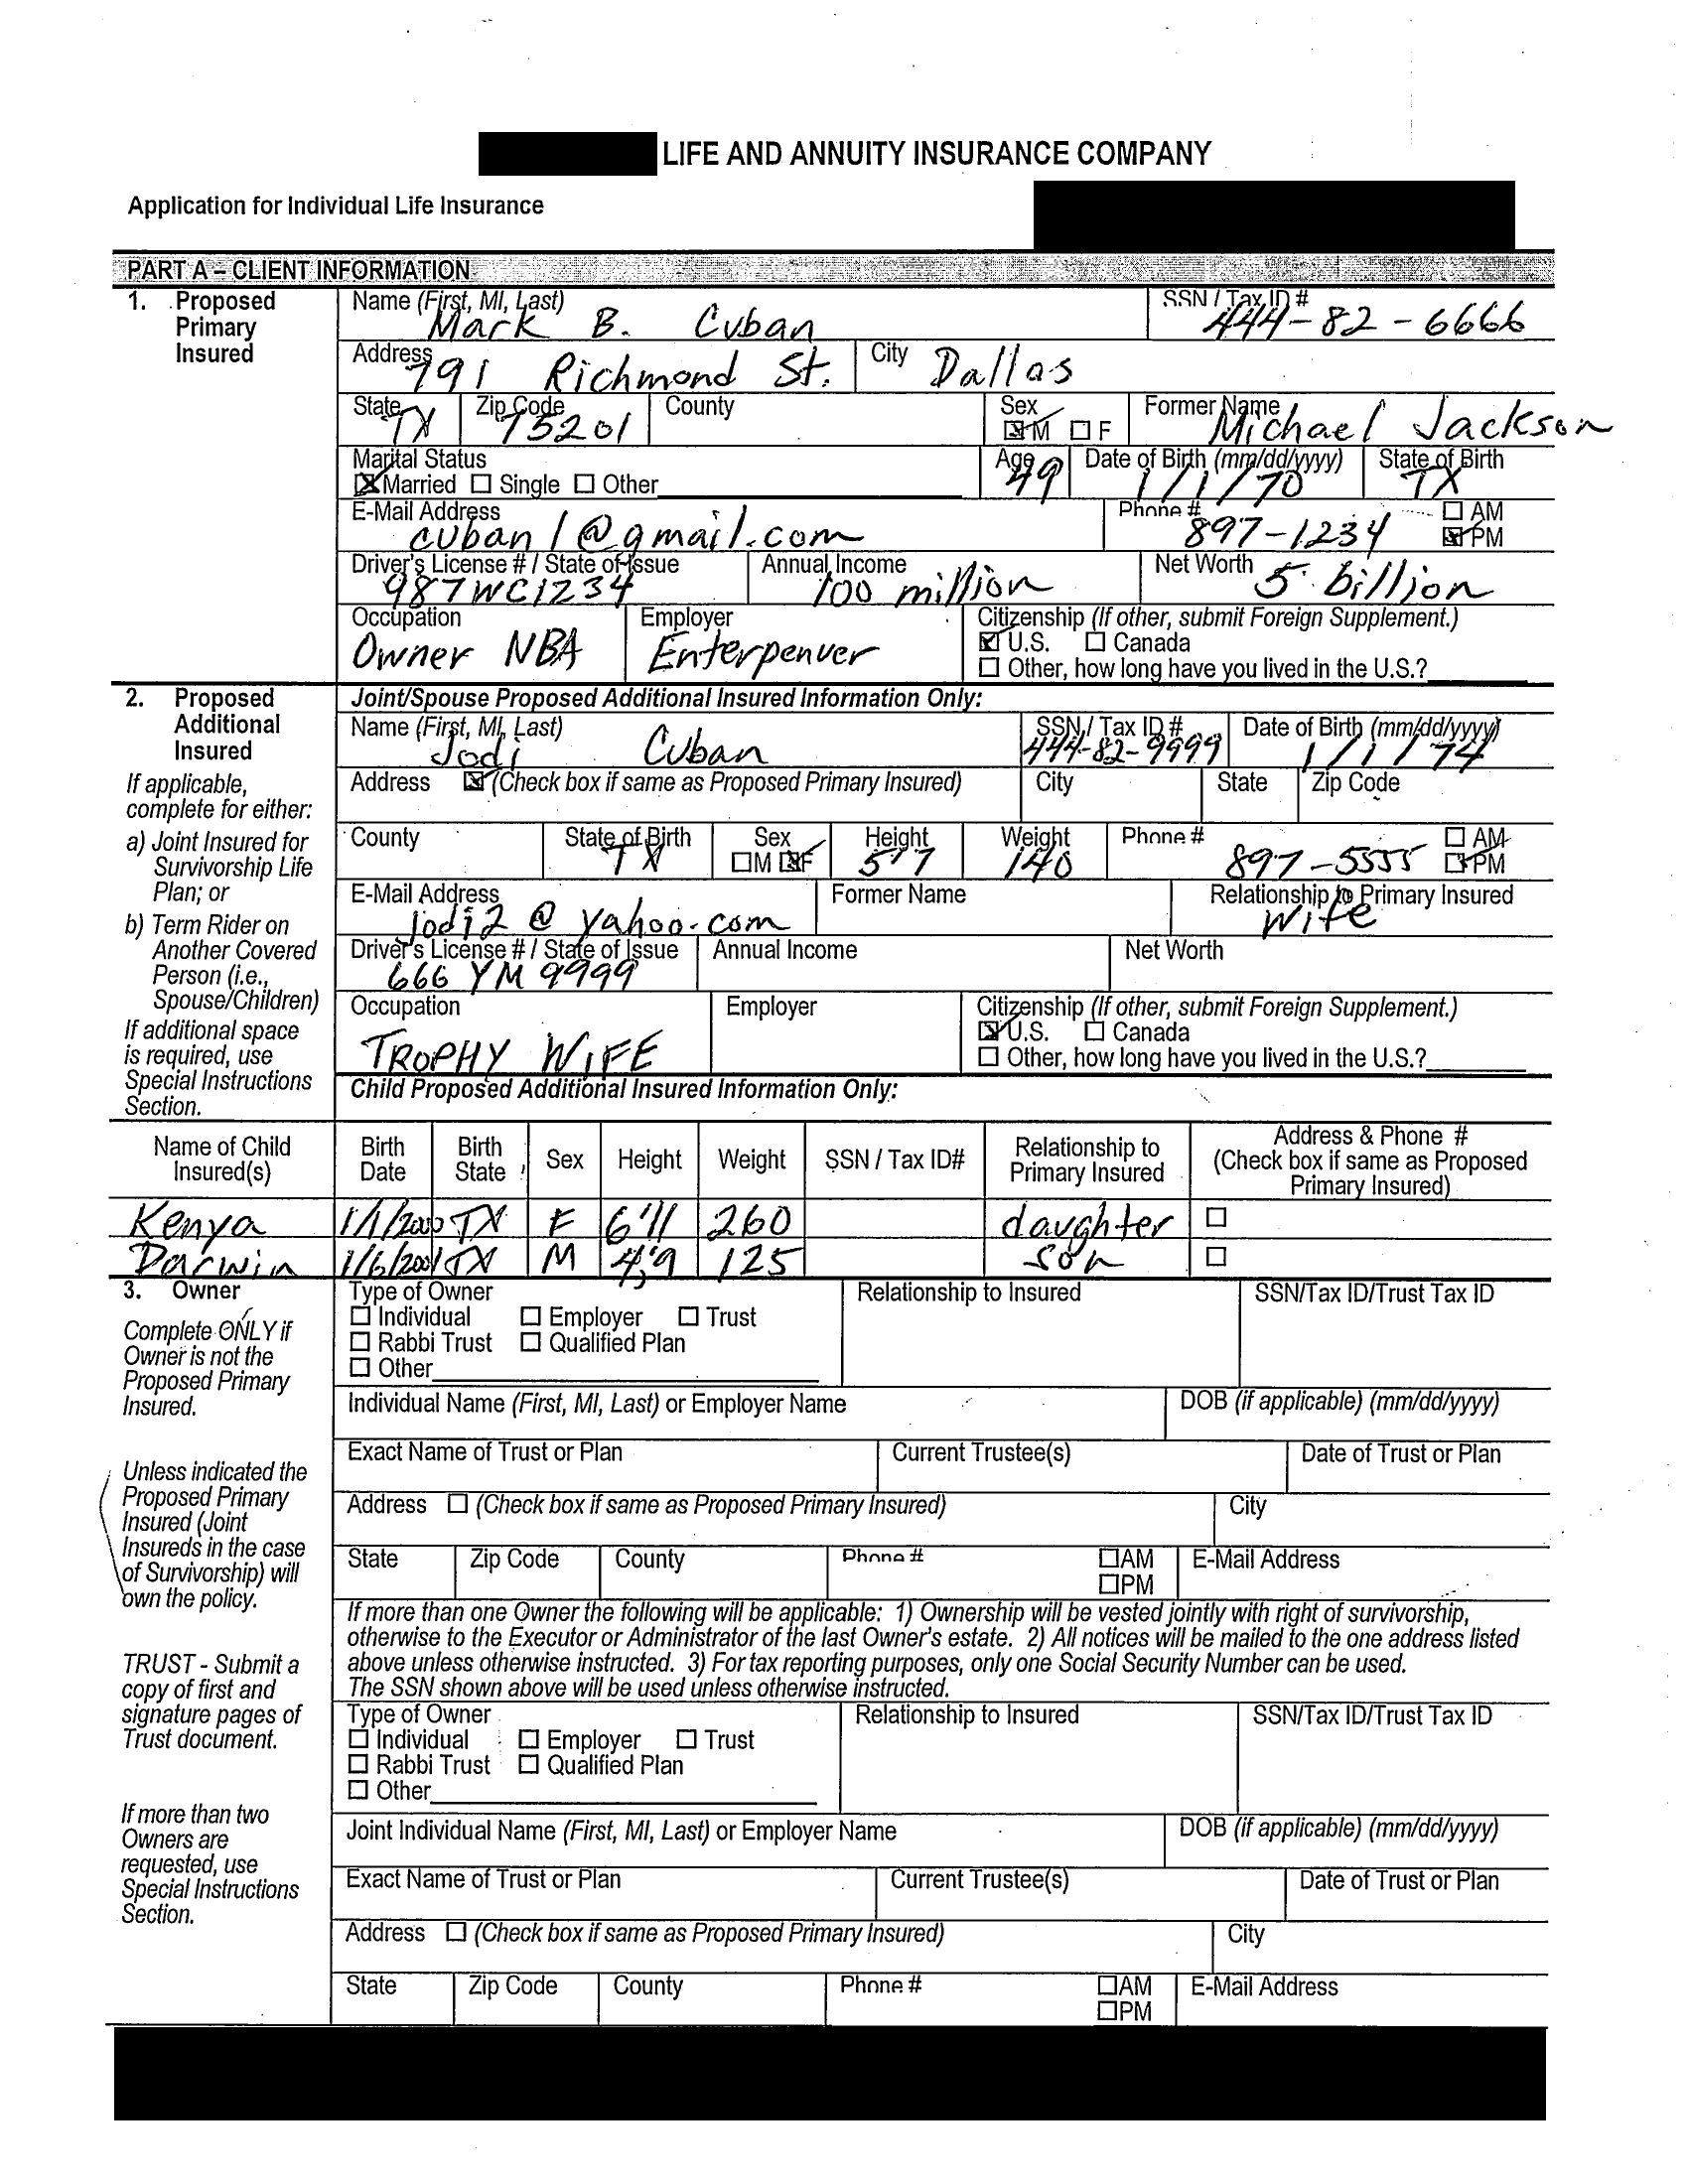 LIFE AND ANNUITY INSURANCE COMPANY
Application for Individual Life Insurance
PART A – CLIENT INFORMATION
1. Proposed Primary Insured
Name (First, MI, Last) Mark B. Cuban SSN / Tax ID # 444-82-6666
Address 791 Richmond St. City Dallas
State TX Zip Code 75201 County Sex ☒ M ☐ F Former Name Michael Jackson
Marital Status ☒ Married ☐ Single ☐ Other Age 49 Date of Birth (mm/dd/yyyy) 1/1/70 State of Birth TX
E-Mail Address cuban1@gmail.com Phone # 897-1234 ☐ AM ☒ PM
Driver's License # / State of Issue 987WC1234 Annual Income 100 million Net Worth 5 billion
Occupation Owner NBA Employer Enterpenuer Citizenship (If other, submit Foreign Supplement.)
☒ U.S. ☐ Canada
☐ Other, how long have you lived in the U.S.?
2. Proposed Additional Insured
If applicable, complete for either:
a) Joint Insured for Survivorship Life Plan; or
b) Term Rider on Another Covered Person (i.e., Spouse/Children)
If additional space is required, use Special Instructions Section.
Joint/Spouse Proposed Additional Insured Information Only:
Name (First, MI, Last) Jodi Cuban SSN / Tax ID # 444-82-9999 Date of Birth (mm/dd/yyyy) 1/1/74
Address ☒ (Check box if same as Proposed Primary Insured) City State Zip Code
County State of Birth TX Sex ☐ M ☒ F Height 5'7 Weight 140 Phone # 897-5555 ☐ AM ☒ PM
E-Mail Address jodi2@yahoo.com Former Name Relationship to Primary Insured Wife
Driver's License # / State of Issue 666 YM 9999 Annual Income Net Worth
Occupation TROPHY WIFE Employer Citizenship (If other, submit Foreign Supplement.)
☒ U.S. ☐ Canada
☐ Other, how long have you lived in the U.S.?
Child Proposed Additional Insured Information Only:
Name of Child Insured(s) Birth Date Birth State Sex Height Weight SSN / Tax ID# Relationship to Primary Insured Address & Phone # (Check box if same as Proposed Primary Insured)
Kenya 1/1/2000 TX F 6'11 260 daughter ☐
Darwin 1/6/2001 TX M 4'9 125 son ☐
3. Owner
Complete ONLY if Owner is not the Proposed Primary Insured.
Unless indicated the Proposed Primary Insured (Joint Insureds in the case of Survivorship) will own the policy.
TRUST - Submit a copy of first and signature pages of Trust document.
If more than two Owners are requested, use Special Instructions Section.
Type of Owner Relationship to Insured SSN/Tax ID/Trust Tax ID
☐ Individual ☐ Employer ☐ Trust
☐ Rabbi Trust ☐ Qualified Plan
☐ Other
Individual Name (First, MI, Last) or Employer Name DOB (if applicable) (mm/dd/yyyy)
Exact Name of Trust or Plan Current Trustee(s) Date of Trust or Plan
Address ☐ (Check box if same as Proposed Primary Insured) City
State Zip Code County Phone # ☐ AM ☐ PM E-Mail Address
If more than one Owner the following will be applicable: 1) Ownership will be vested jointly with right of survivorship,
otherwise to the Executor or Administrator of the last Owner's estate. 2) All notices will be mailed to the one address listed
above unless otherwise instructed. 3) For tax reporting purposes, only one Social Security Number can be used.
The SSN shown above will be used unless otherwise instructed.
Type of Owner Relationship to Insured SSN/Tax ID/Trust Tax ID
☐ Individual ☐ Employer ☐ Trust
☐ Rabbi Trust ☐ Qualified Plan
☐ Other
Joint Individual Name (First, MI, Last) or Employer Name DOB (if applicable) (mm/dd/yyyy)
Exact Name of Trust or Plan Current Trustee(s) Date of Trust or Plan
Address ☐ (Check box if same as Proposed Primary Insured) City
State Zip Code County Phone # ☐ AM ☐ PM E-Mail Address